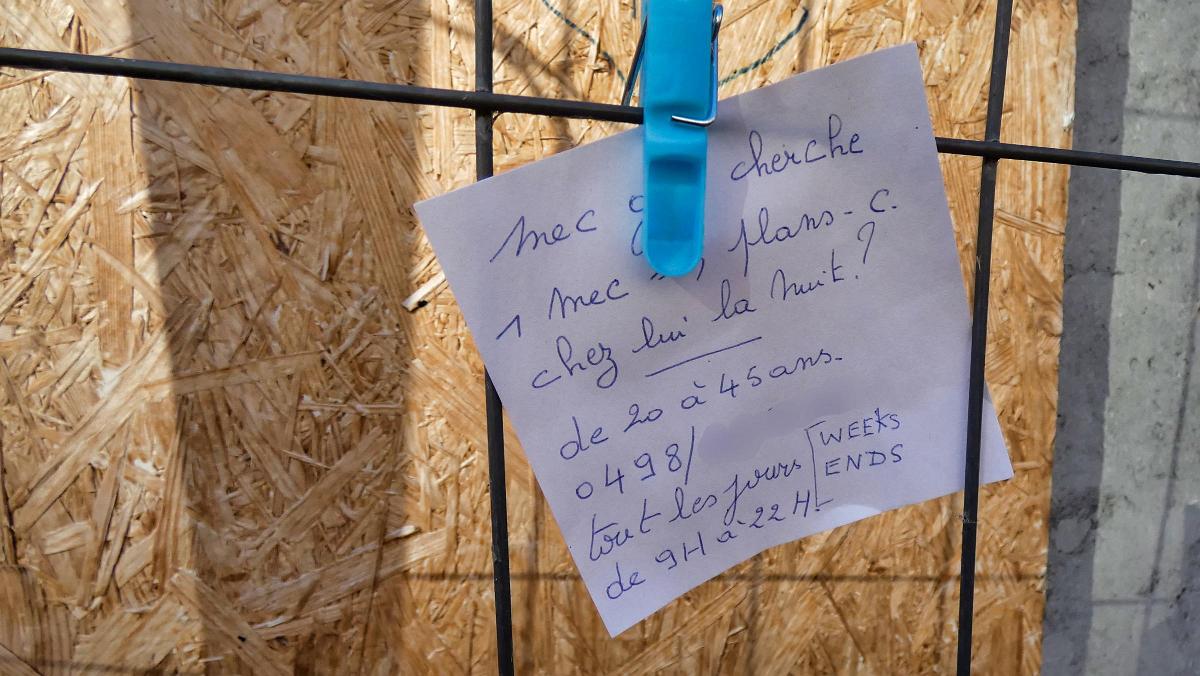 mec cherche
1 mec "", plans-c.
chez lui la nuit?
de 20 à 45 ans.
0498/
tout les jours WEEKS
ENDS
de 9H à 22H